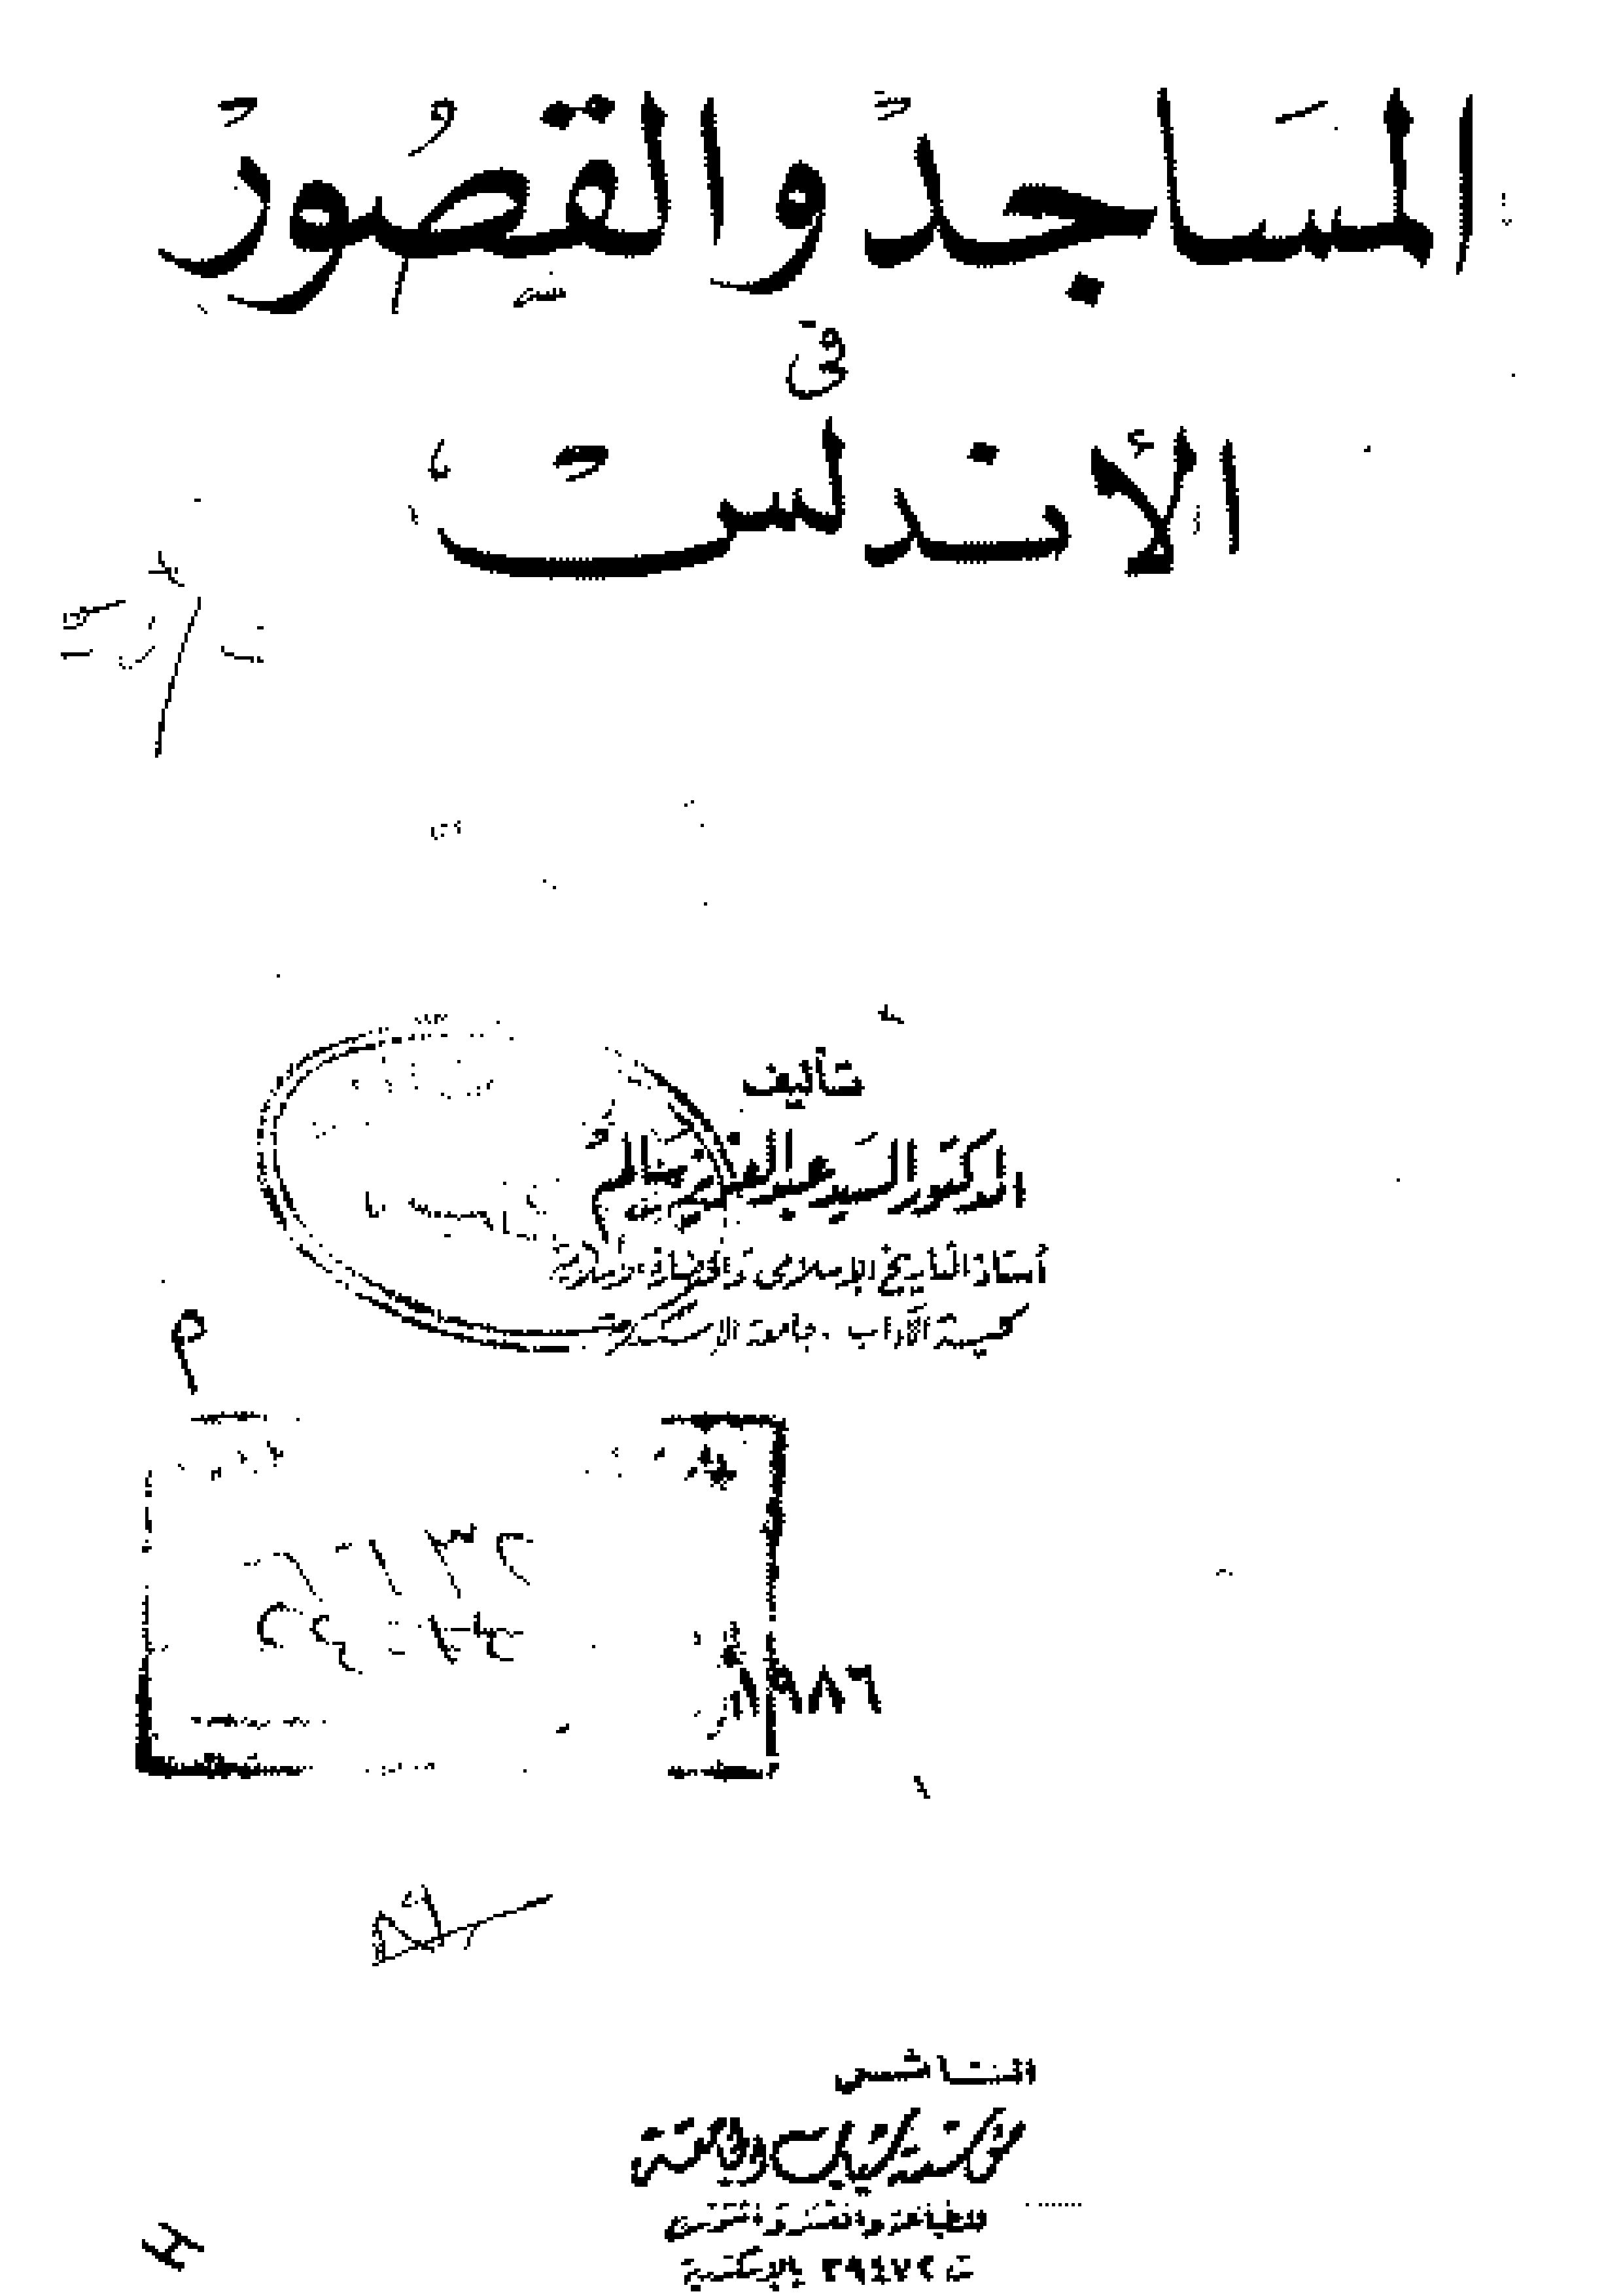 المساجد والقصور
في
الأندلس
تأليف
الدكتور السيد عبد العزيز سالم
أستاذ التاريخ الإسلامى والحضارة الإسلامية
كلية الآداب - جامعة الإسكندرية
م
١٩٨٦
الناشر
مؤسسة شباب الجامعة
للطباعة والنشر والتوزيع
ت ٣٩٤٧٢ بالإسكندرية